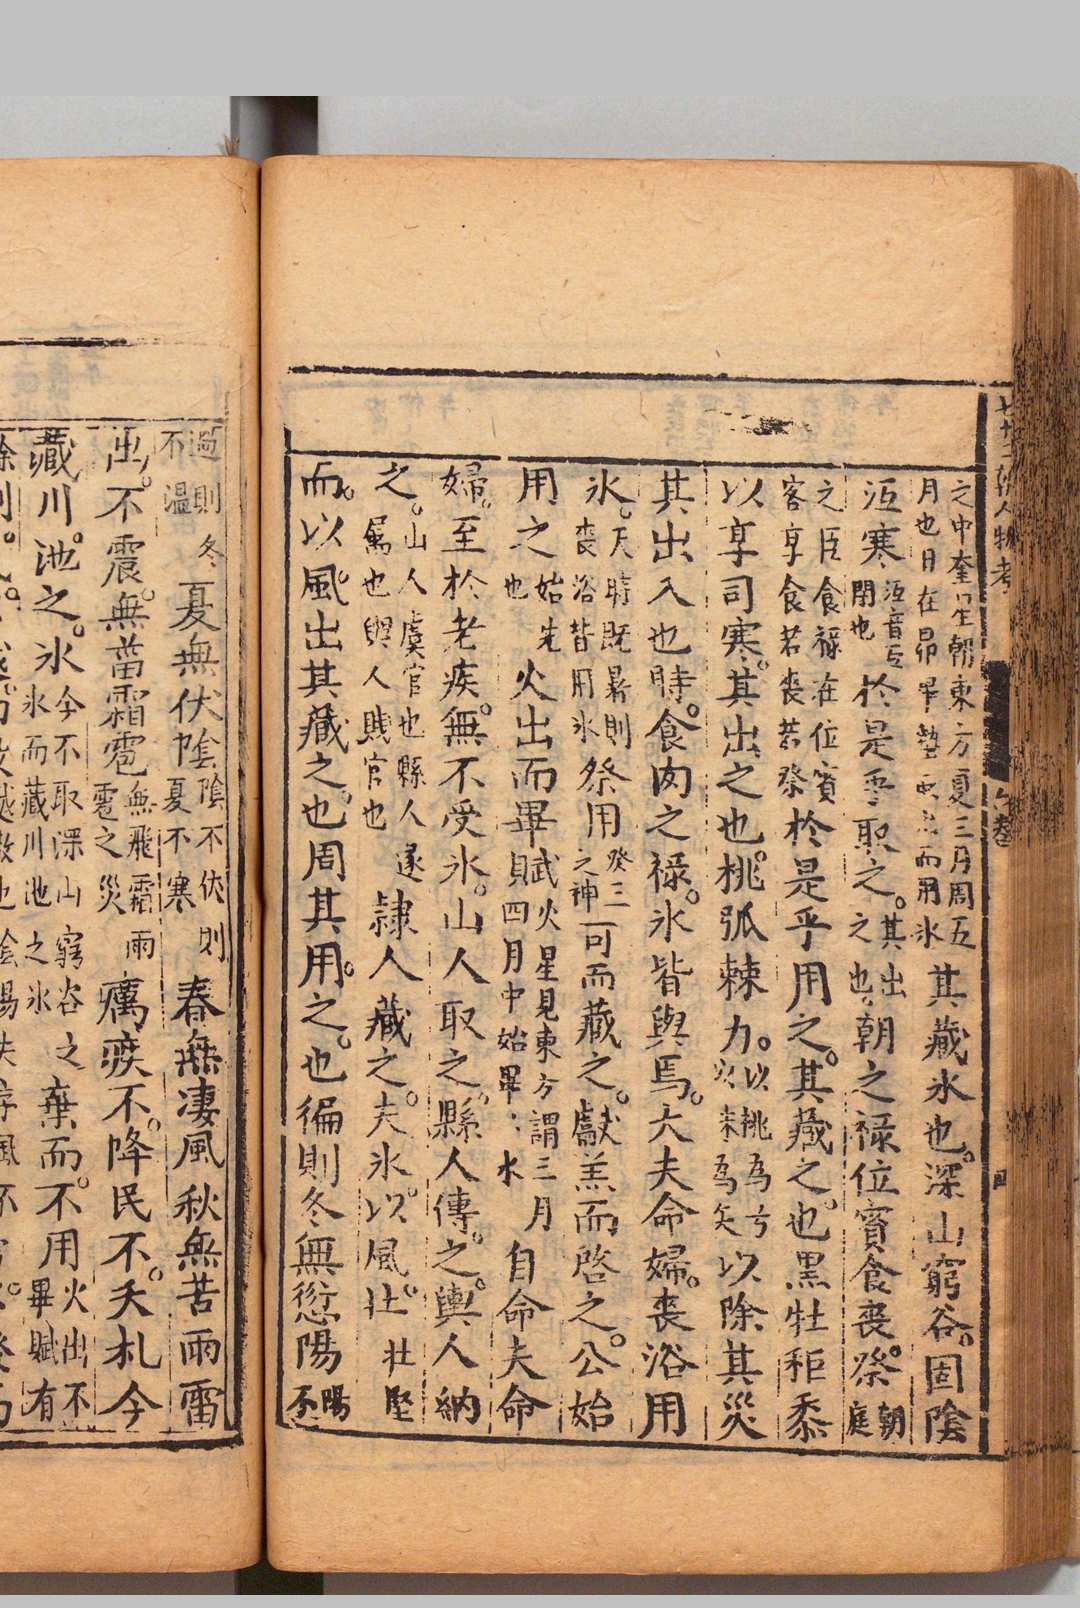 之中奎星朝東方夏三月周五
月也日在昴畢蟄䖝出而用氷
其藏氷也。深山窮谷。固陰
沍寒
沍音互
閉也
於是乎取之。
其出
之也
朝之禄位賓食喪祭。
朝庭
之臣食禄在位賓
客享食若喪若祭
於是乎用之。其藏之。也黑牡秬黍
以享司寒。其出之也。桃弧棘力。
以桃為弓
以棘為矢
以除其災
其出入也時。食肉之禄。氷皆與焉。大夫命婦。喪浴用
氷。
天時既暑則
喪浴皆用氷
祭用
之神
可而藏之。獻羔而啓之。公始
用之
始先
也
火出而畢賦
火星見東方謂三月
四月中始畢
自命夫命
婦。至於老疾。無不受氷。山人取之。縣人傳之。輿人納
之。
山人虞官也縣人遂
屬也輿人賤官也
隷人藏之。夫氷。以風壮。
壮
堅
而。以風。出其藏之也。周其用。之。也徧則冬無愆陽
陽
不
過則冬
不温
夏無伏陰
陰不伏則
夏不寒
春無凄風秋無苦雨雷
出。不震。無菑霜雹
無飛霜雨
雹之災
癘疾不。降民不。夭札今
藏川。池之。氷
今不取深山窮谷之
氷而藏川池之氷
棄而。不用
火出不
畢賦有